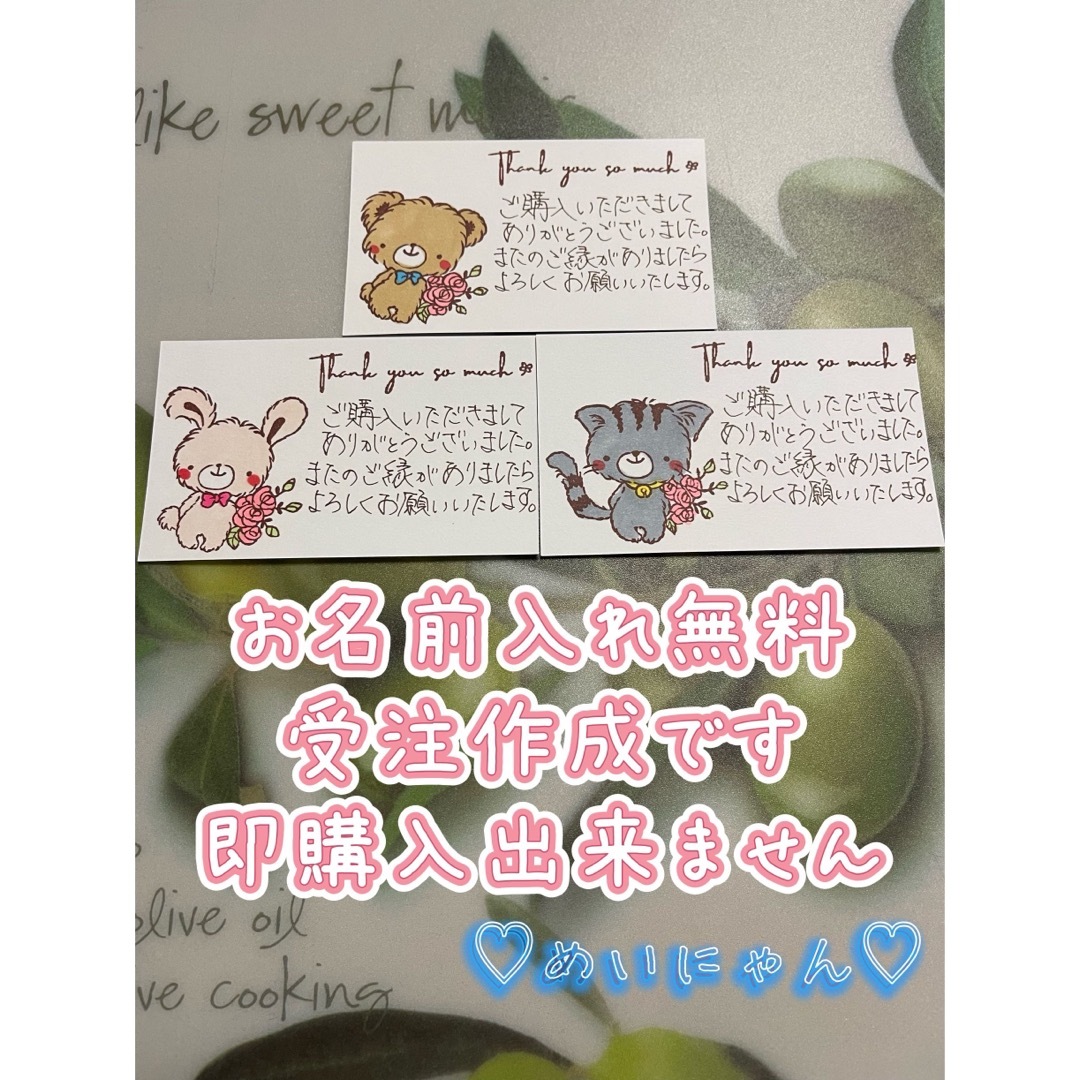 like sweet
Thank you so much
ご購入いただきまして
ありがとうございました。
またのご縁がありましたら
よろしくお願いいたします。
Thank you so much
ご購入いただきまして
ありがとうございました。
またのご縁がありましたら
よろしくお願いいたします。
Thank you so much
ご購入いただきまして
ありがとうございました。
またのご縁がありましたら
よろしくお願いいたします。
お名前入れ無料
受注作成です
即購入出来ません
olive oil
♡めいにゃん♡
cooking